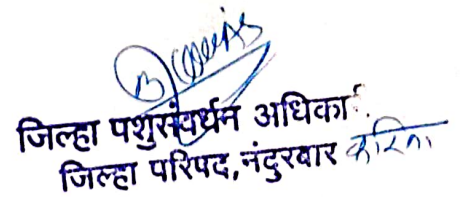 जिल्हा पशुसंवर्धन अधिका
जिल्हा परिषद, नंदुरबार करिता